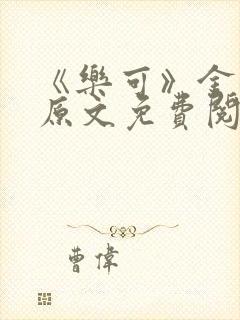 《樂可》全
原文免費閱
曹偉